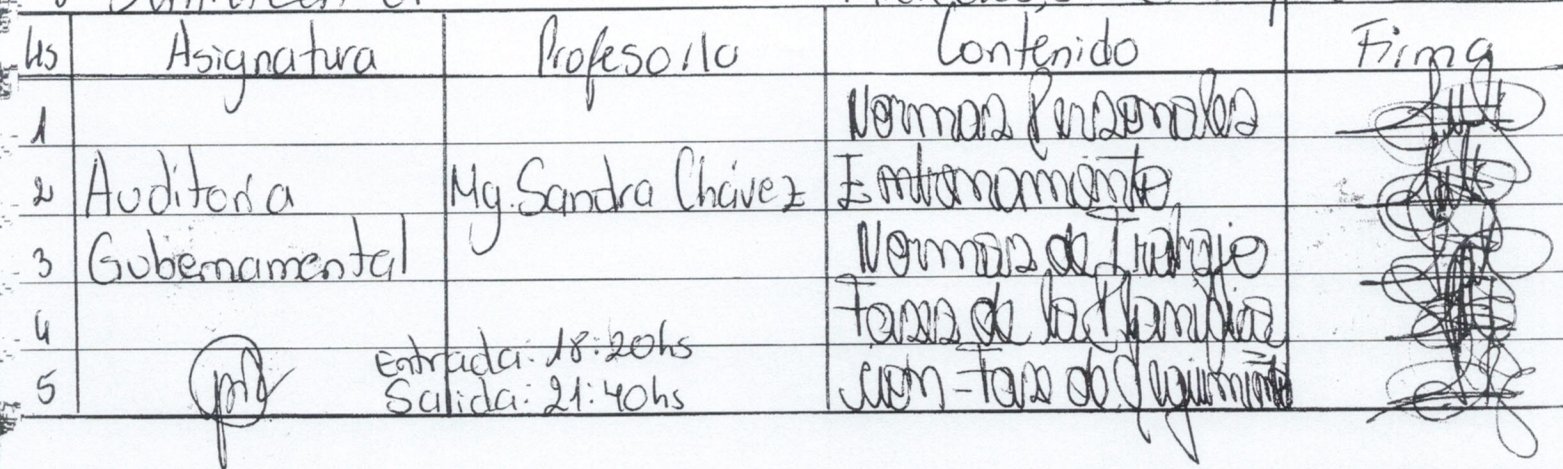 Hs Asignatura Profesor/a Contenido Firma
1 Normas Personales
2 Auditoría Mg. Sandra Chávez Entrenamiento
3 Gubernamental Normas de Trabajo
4 Fases de la Planifica
Entrada: 18:20hs
5 Salida: 21:40hs ción - Fase de Seguimiento